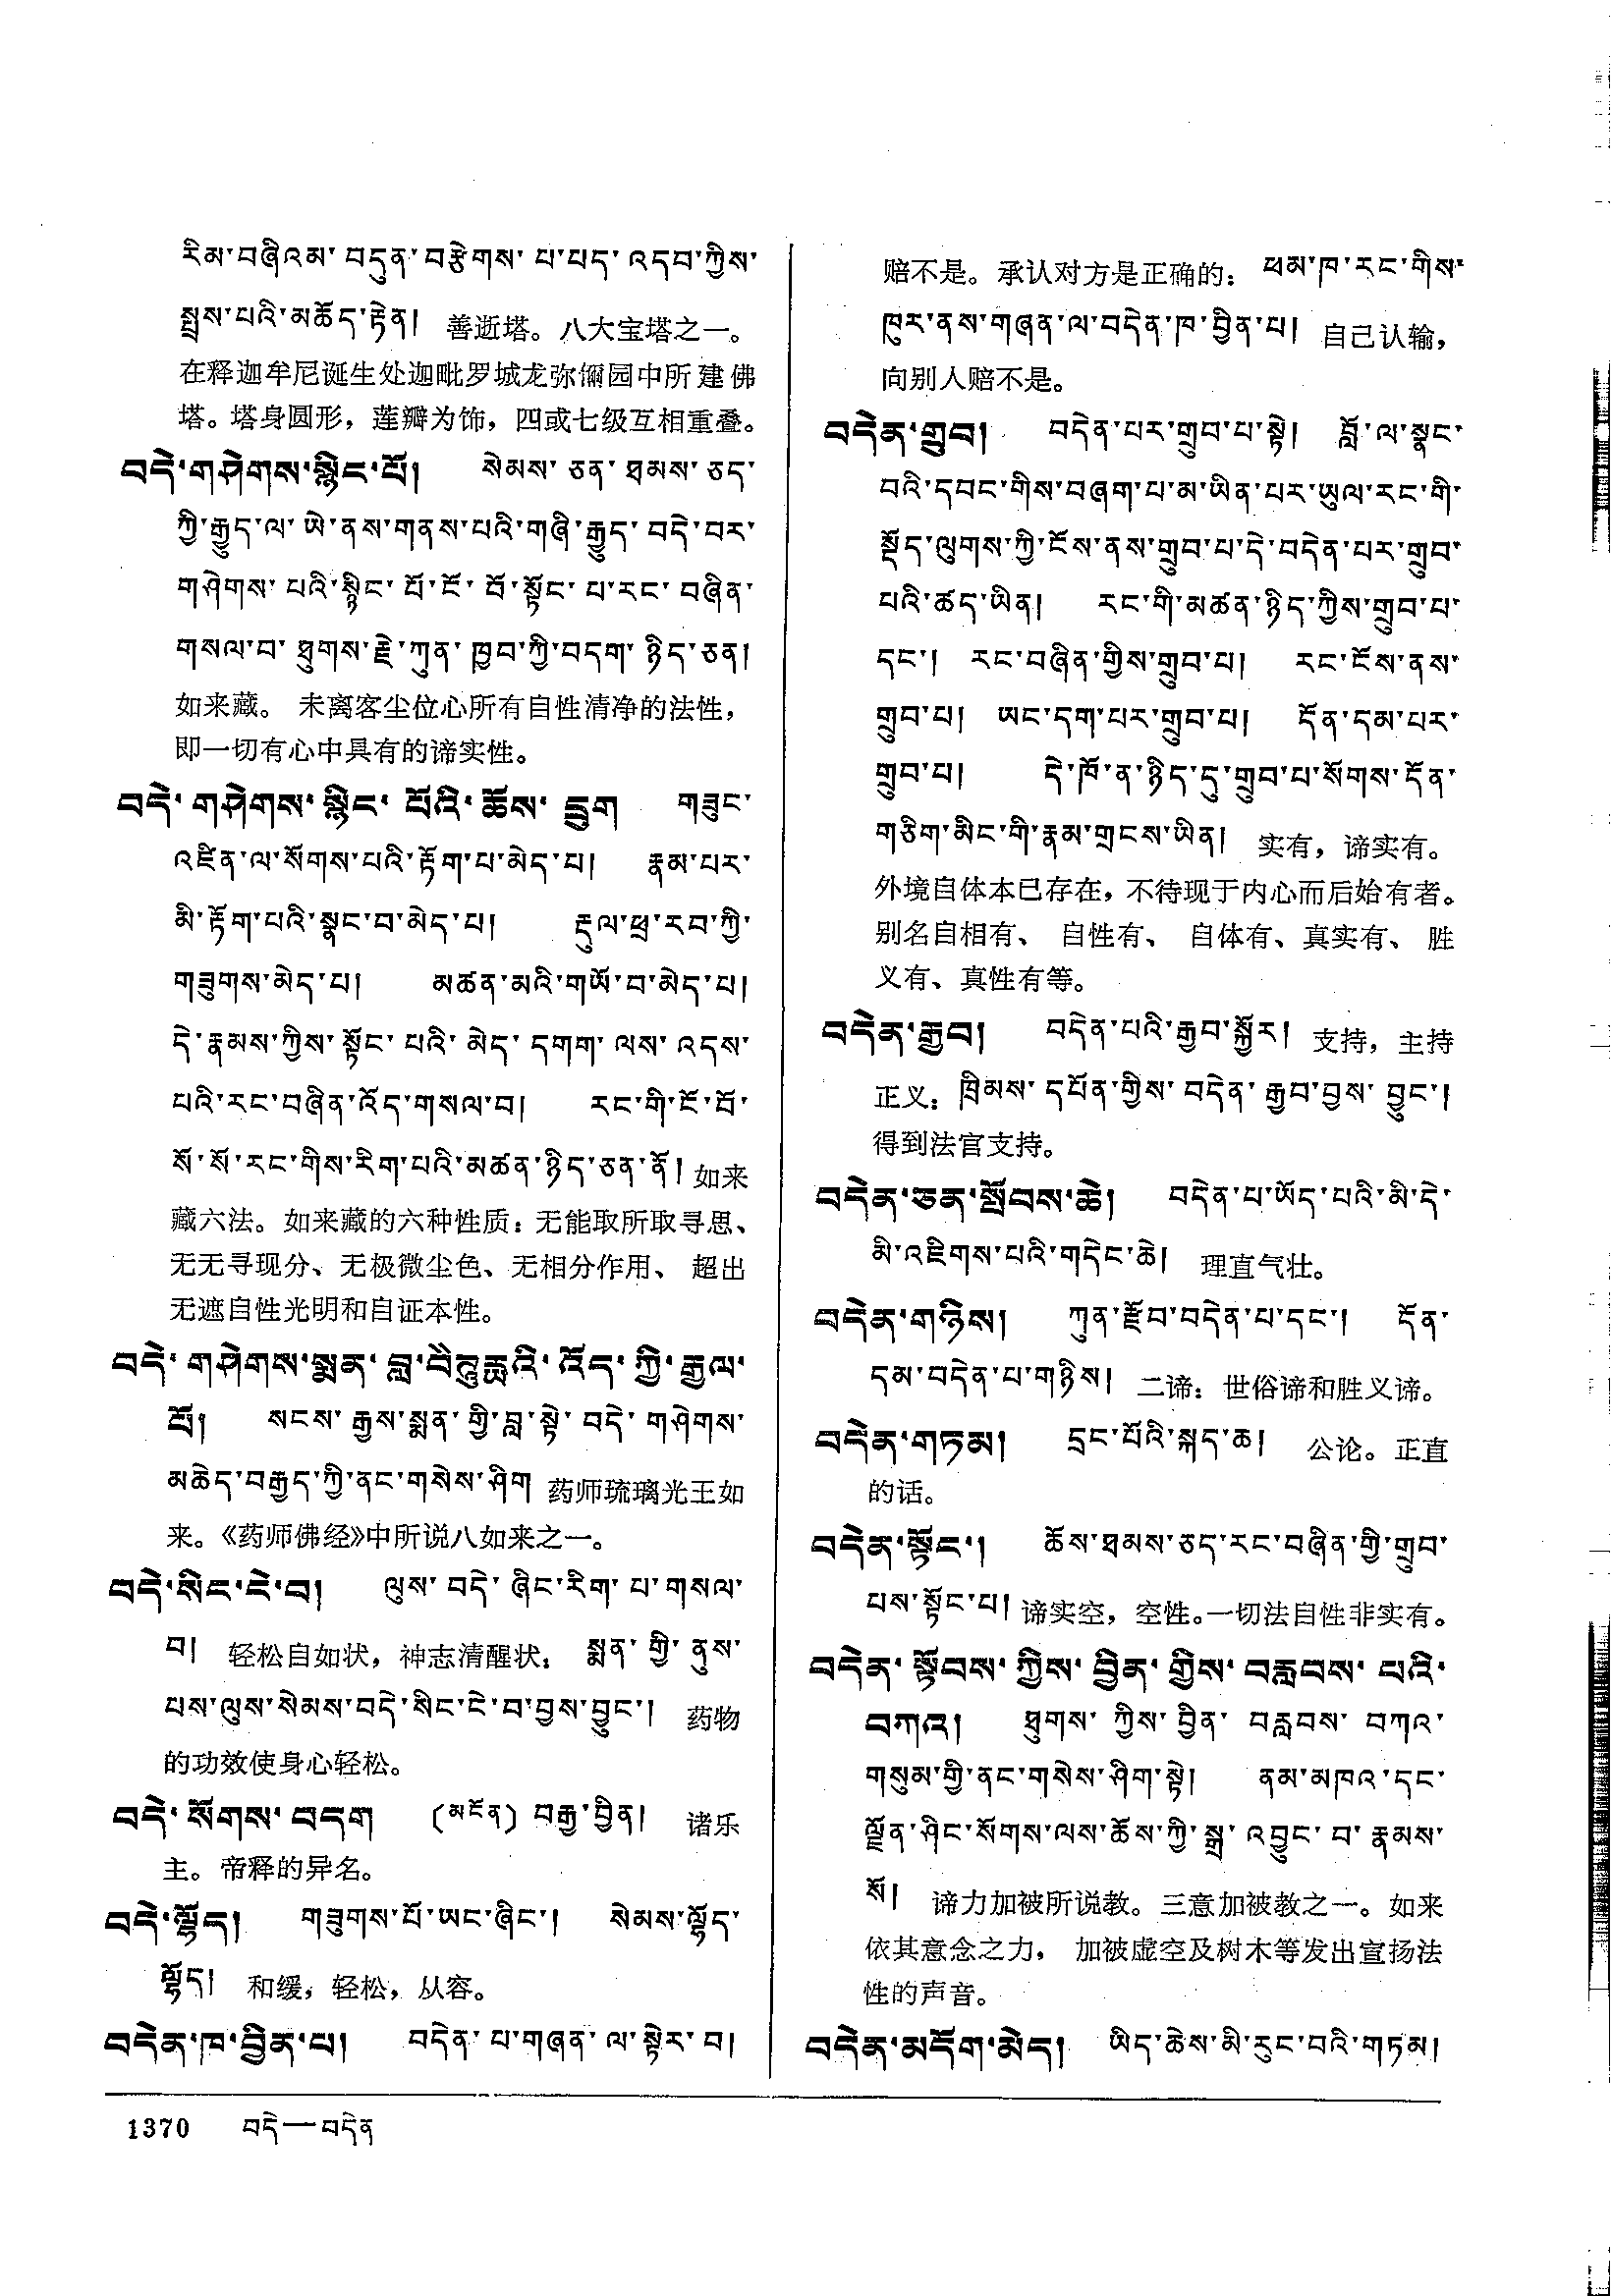 རིམ་བཞིའམ་ བདུན་བརྩེགས་ པ་པད་ འདབ་ཀྱིས་
སྤྲས་པའི་མཆོད་རྟེན། 善逝塔。八大宝塔之一。
在释迦牟尼诞生处迦毗罗城龙弥儞园中所建佛
塔。塔身圆形，莲瓣为饰，四或七级互相重叠。
བདེ་གཤེགས་སྙིང་པོ། སེམས་ ཅན་ ཐམས་ ཅད་
ཀྱི་རྒྱུད་ལ་ ཡེ་ནས་གནས་པའི་གཞི་རྒྱུད་ བདེ་བར་
གཤེགས་ པའི་སྙིང་ པོ་ངོ་ བོ་སྟོང་ པ་རང་ བཞིན་
གསལ་བ་ ཐུགས་རྗེ་ཀུན་ ཁྱབ་ཀྱི་བདག་ ཉིད་ཅན།
如来藏。 未离客尘位心所有自性清净的法性，
即一切有心中具有的谛实性。
བདེ་གཤེགས་སྙིང་ པོའི་ཆོས་ དྲུག གཟུང་
འཛིན་ལ་སོགས་པའི་རྟོག་པ་མེད་པ། རྣམ་པར་
མི་རྟོག་པའི་སྣང་བ་མེད་པ། རྡུལ་ཕྲ་རབ་ཀྱི་
གཟུགས་མེད་པ། མཚན་མའི་གཡོ་བ་མེད་པ།
དེ་རྣམས་ཀྱིས་སྟོང་ པའི་མེད་ དགག་ ལས་འདས་
པའི་རང་བཞིན་འོད་གསལ་བ། རང་གི་ངོ་བོ་
སོ་སོ་རང་གིས་རིག་པའི་མཚན་ཉིད་ཅན་ནོ། 如来
藏六法。如来藏的六种性质：无能取所取寻思、
无无寻现分、无极微尘色、无相分作用、 超出
无遮自性光明和自证本性。
བདེ་གཤེགས་སྨན་ བླ་བཻཌཱུརྱའི་འོད་ཀྱི་རྒྱལ་
པོ། སངས་རྒྱས་སྨན་གྱི་བླ་སྟེ་ བདེ་གཤེགས་
མཆེད་བརྒྱད་ཀྱི་ནང་གསེས་ཤིག 药师琉璃光王如
来。《药师佛经》中所说八如来之一。
བདེ་སིང་ངེ་བ། ལུས་ བདེ་ ཞིང་རིག་ པ་གསལ་
བ། 轻松自如状，神志清醒状： སྨན་ གྱི་ ནུས་
པས་ལུས་སེམས་བདེ་སིང་ངེ་བ་བྱས་བྱུང་། 药物
的功效使身心轻松。
བདེ་ སོགས་ བདག (མངོན) བརྒྱ་བྱིན། 诸乐
主。帝释的异名。
བདེ་ལྷོད། གཟུགས་པོ་ཡང་ཞིང་། སེམས་ལྷོད་
ལྷོད། 和缓，轻松，从容。
བདེན་ཁ་བྱིན་པ། བདེན་ པ་གཞན་ ལ་སྟེར་ བ།
赔不是。承认对方是正确的： ཕམ་ཁ་རང་གིས་
ཁུར་ནས་གཞན་ལ་བདེན་ཁ་བྱིན་པ། 自己认输，
向别人赔不是。
བདེན་གྲུབ། བདེན་པར་གྲུབ་པ་སྟེ། བློ་ལ་སྣང་
བའི་དབང་གིས་བཞག་པ་མ་ཡིན་པར་ཡུལ་རང་གི་
སྡོད་ལུགས་ཀྱི་ངོས་ནས་གྲུབ་པ་དེ་བདེན་པར་གྲུབ་
པའི་ཚད་ཡིན། རང་གི་མཚན་ཉིད་ཀྱིས་གྲུབ་པ་
དང་། རང་བཞིན་གྱིས་གྲུབ་པ། རང་ངོས་ནས་
གྲུབ་པ། ཡང་དག་པར་གྲུབ་པ། དོན་དམ་པར་
གྲུབ་པ། དེ་ཁོ་ན་ཉིད་དུ་གྲུབ་པ་སོགས་དོན་
གཅིག་མིང་གི་རྣམ་གྲངས་ཡིན། 实有，谛实有。
外境自体本已存在，不待现于内心而后始有者。
别名自相有、 自性有、 自体有、真实有、 胜
义有、真性有等。
བདེན་རྒྱབ། བདེན་པའི་རྒྱབ་སྐྱོར། 支持，主持
正义： ཁྲིམས་ དཔོན་གྱིས་ བདེན་ རྒྱབ་བྱས་ བྱུང་།
得到法官支持。
བདེན་ཅན་སྤོབས་ཆེ། བདེན་པ་ཡོད་པའི་མི་དེ་
མི་འཇིགས་པའི་གདེང་ཆེ། 理直气壮。
བདེན་གཉིས། ཀུན་རྫོབ་བདེན་པ་དང་། དོན་
དམ་བདེན་པ་གཉིས། 二谛：世俗谛和胜义谛。
བདེན་གཏམ། དྲང་པོའི་སྐད་ཆ། 公论。正直
的话。
བདེན་སྟོང་། ཆོས་ཐམས་ཅད་རང་བཞིན་གྱི་གྲུབ་
པས་སྟོང་པ། 谛实空，空性。一切法自性非实有。
བདེན་ སྟོབས་ ཀྱིས་ བྱིན་ གྱིས་ བརླབས་ པའི་
བཀའ། ཐུགས་ ཀྱིས་ བྱིན་ བརླབས་ བཀའ་
གསུམ་གྱི་ནང་གསེས་ཤིག་སྟེ། ནམ་མཁའ་དང་
ལྗོན་ཤིང་སོགས་ལས་ཆོས་ཀྱི་སྒྲ་ འབྱུང་ བ་ རྣམས་
སོ། 谛力加被所说教。三意加被教之一。如来
依其意念之力， 加被虚空及树木等发出宣扬法
性的声音。
བདེན་མདོག་མེད། ཡིད་ཆེས་མི་རུང་བའི་གཏམ།
1370 བདེ—བདེན